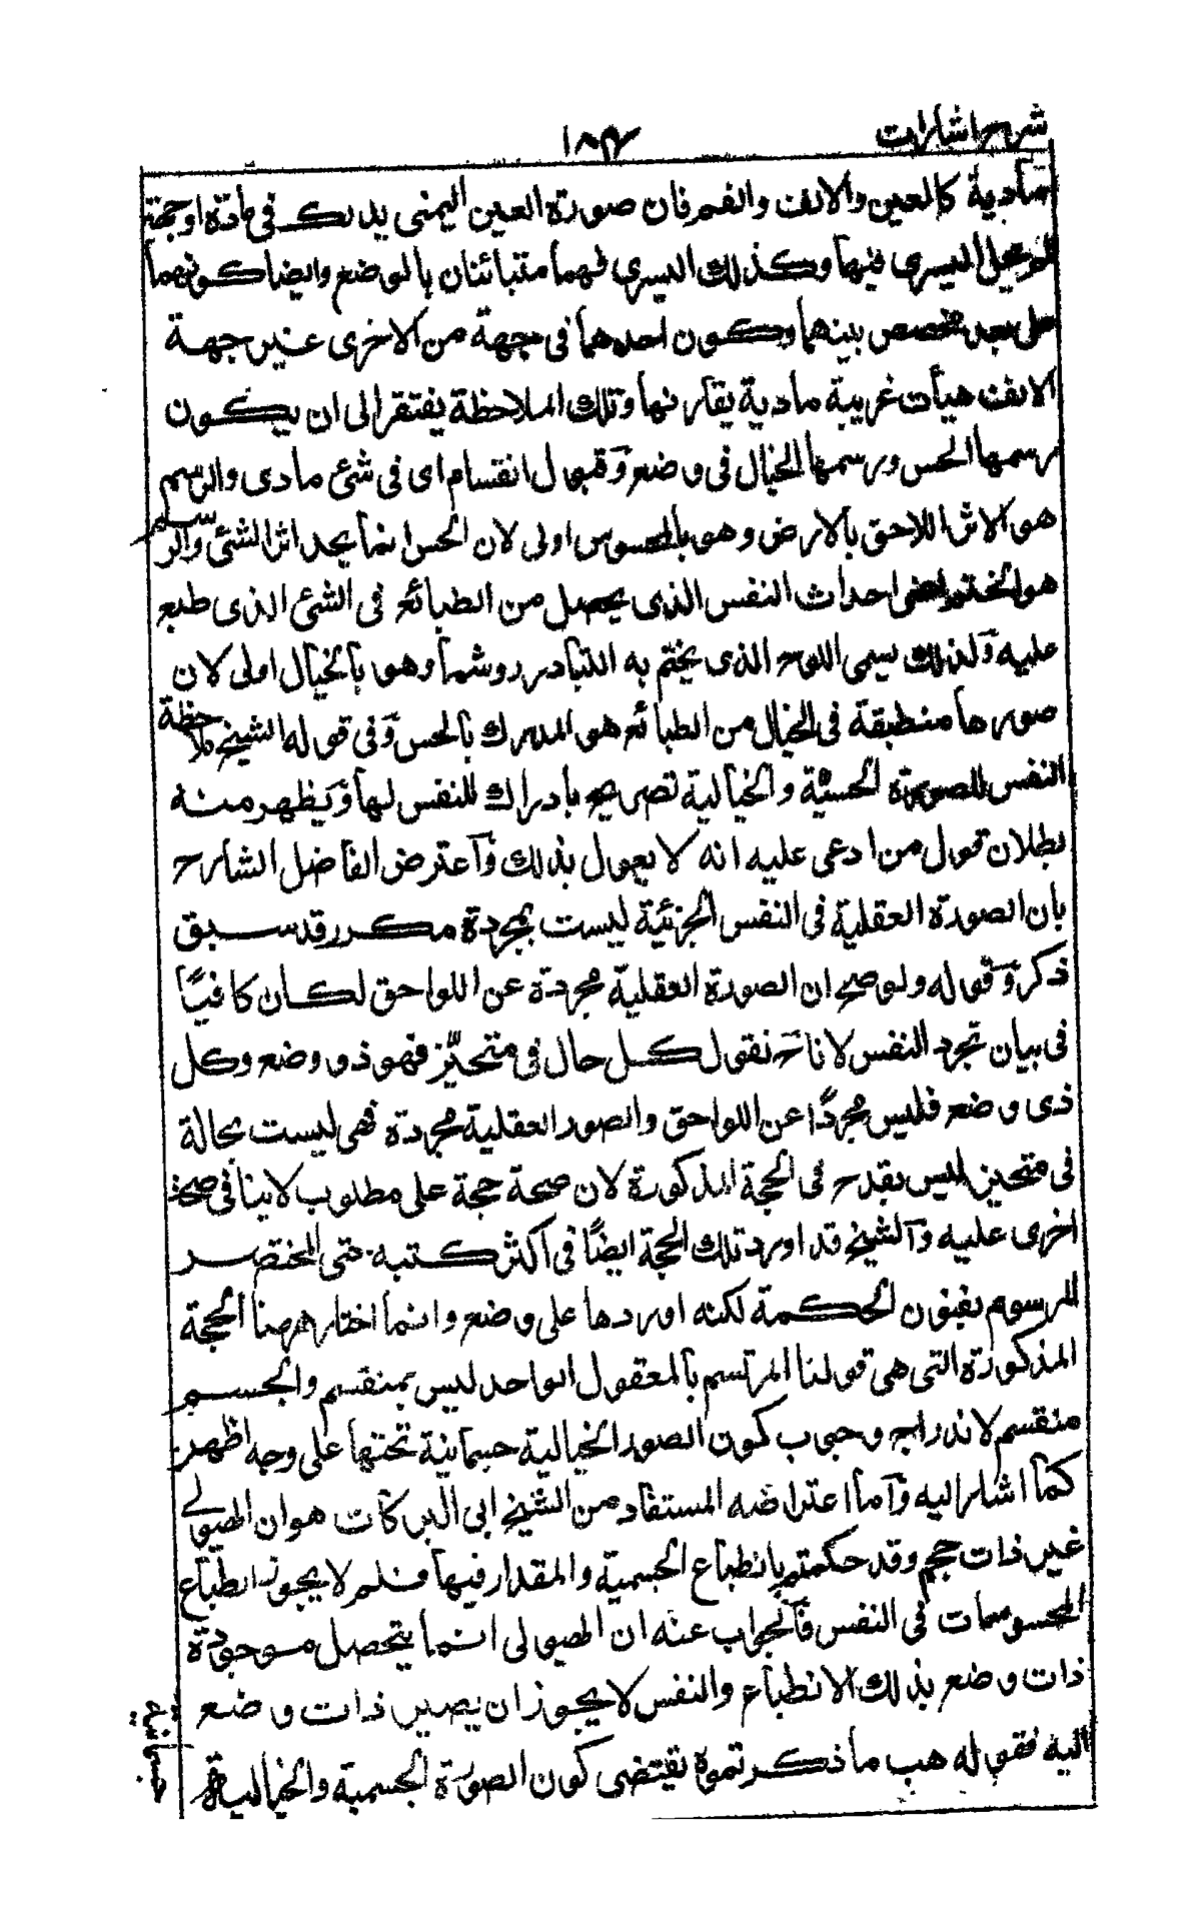 شرح اشارات
۱۸۴
مادية كالعين والانف والفم فان صورة العين اليمنى يدرك فى مادة او جهة
اليسرى فيها وكذلك اليسرى فهما متبائنان بالوضع وايضا كونهما
على بعد مخصص بينهما وكون احدهما فى جهة من الاخرى غير جهة
الانف هيأت غريبة مادية يقارنها وتلك الملاحظة يفتقر الى ان يكون
رسمها الحس ورسمها الخيال فى وضع وقبول انقسام اى فى شئ مادى والرسم
هو الاثر اللاحق بالارض وهو بالمحسوس اولى لان الحس انما يجد اثر الشئ والرسم
هو الختم اعنى احداث النفس الذى يحصل من الطبائع فى الشئ الذى طبع
عليه ولذلك يسمى اللوح الذى يختم به البنادر روشما وهو بالخيال اولى لان
صورها منطبقة فى الخيال من الطبائع هو المدرك بالحس وفى قوله الشيخ ملاحظة
النفس للصورة الحسية والخيالية تصريح بادراك النفس لها ويظهر منه
بطلان قول من ادعى عليه انه لا يقول بذلك واعترض الفاضل الشارح
بان الصورة العقلية فى النفس الجزئية ليست بمجردة مكرر قد سبق
ذكره وقوله ولو صح ان الصورة العقلية مجردة عن اللواحق لكان كافيًا
فى بيان تجرد النفس لانا نقول كل حال فى متحيّز فهو ذو وضع وكل
ذى وضع فليس مجردًا عن اللواحق والصور العقلية مجردة فهى ليست بحالة
فى متحيز ليس بقدح فى الحجة المذكورة لان صحة حجة على مطلوب لا ينافى صحة
اخرى عليه والشيخ قد اورد تلك الحجة ايضًا فى اكثر كتبه حتى المختصر
المرسوم بعيون الحكمة لكنه اوردها على وضع وانما اختار ههنا الحجة
المذكورة التى هى قولنا المرتسم بالمعقول الواحد ليس بمنقسم والجسم
منقسم لاندراج وجوب كون الصور الخيالية جسمانية تحتها على وجه اظهر
كما اشار اليه واما اعتراضه المستفاد من الشيخ ابى البركات هو ان الهيولى
غير ذات حجم وقد حكمتم بانطباع الجسمية والمقدار فيها فلم لا يجوز انطباع
المحسوسات فى النفس فالجواب عنه ان الهيولى انما يتحصل موجودة
ذات وضع بذلك الانطباع والنفس لا يجوز ان يصير ذات وضع
اليه فقوله هب ما ذكرتموه يقتضى كون الصورة الجسمية والخيالية
جسمانية